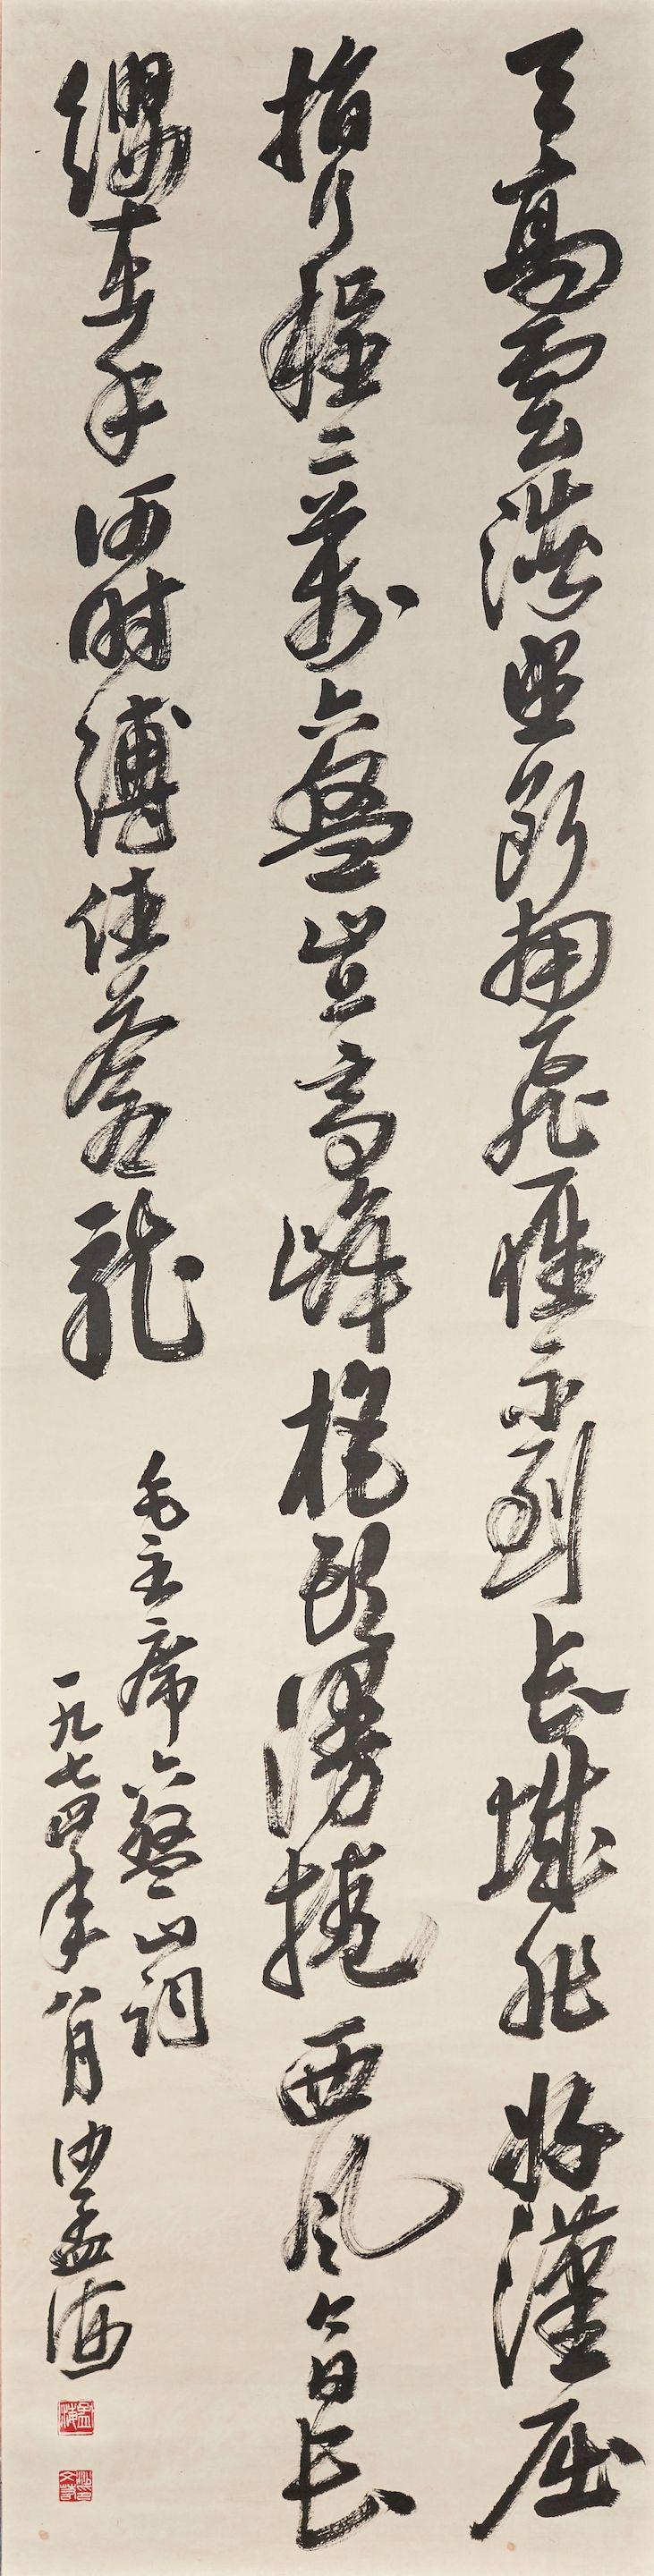 天高雲淡望斷南飛雁不到长城非好漢屈
指行程二萬六盤山上高峰旄頭漫捲西风今日长
纓在手何时縛住蒼龍
毛主席六盤山詞
一九七四年八月沙孟海
孟海